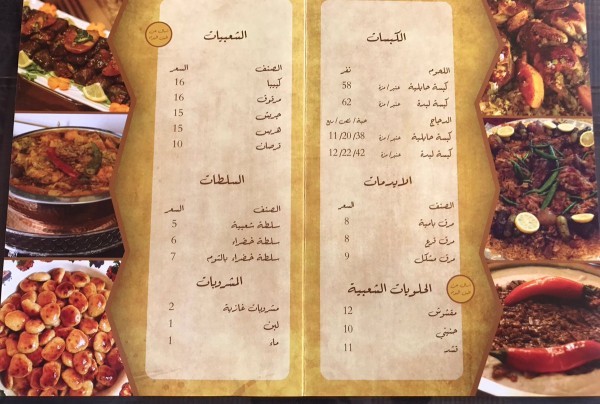 الكبسات
اللحوم نفر
كبسة حايلية عندي/مزة 58
كبسة ليدة عندي/مزة 62
الدجاج حبة/نص/ربع
كبسة حايلية 11/20/38
كبسة ليدة 12/22/42
الايدمات
الصنف السعر
مرق بامية 8
مرق قرع 8
مرق مشكل 9
الحلويات الشعبية
مقشوش 12
حنيني 10
قشد 11
الشعبيات
الصنف السعر
كبيبا 16
مرقوق 16
جريش 15
هريس 15
قرصان 10
السلطات
الصنف السعر
سلطة شعبية 5
سلطة خضراء 6
سلطة خضراء بالثوم 7
المشروبات
مشروبات غازية 2
لبن 1
ماء 1